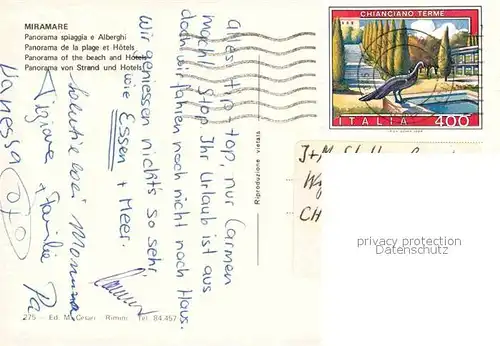 MIRAMARE
Panorama spiaggia e Alberghi
Panorama de la plage et Hôtels
Panorama of the beach and Hotels
Panorama von Strand und Hotels
CHIANCIANO TERME
ITALIA 400
alles tip-top, nur Carmen
macht Stop. Ihr Urlaub ist aus
doch wir fahren noch nicht nach Haus.
Wir geniessen nichts so sehr,
wie Essen + Meer.
Tiziana + Familie
Vanessa
Riproduzione vietata
J+M
CH
privacy protection
Datenschutz
275 - Ed. M. Cesari Rimini Tel. 84.457